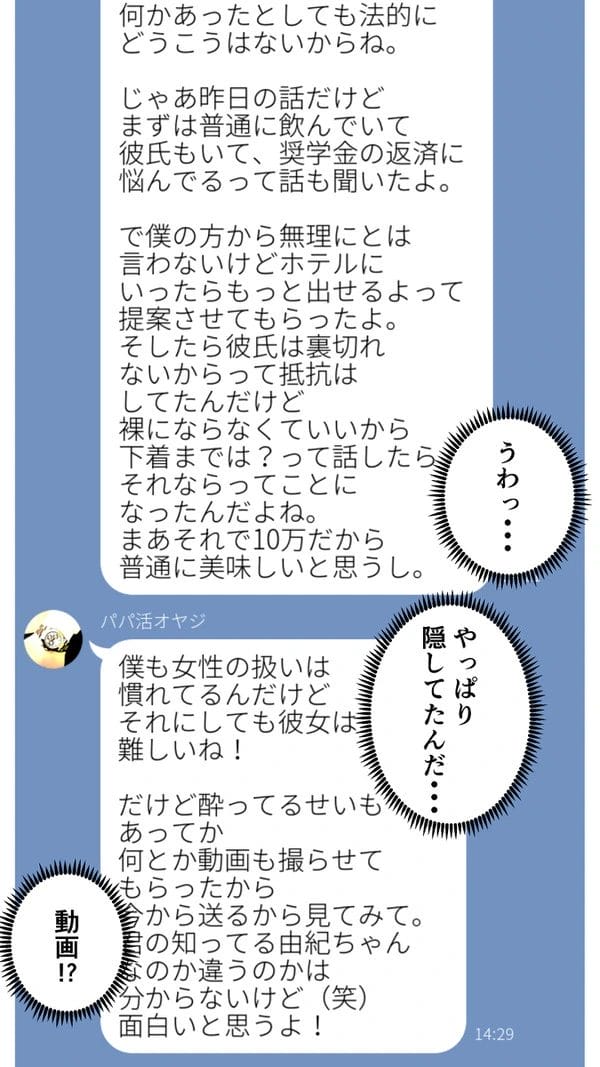 何かあったとしても法的に
どうこうはないからね。
じゃあ昨日の話だけど
まずは普通に飲んでいて
彼氏もいて、奨学金の返済に
悩んでるって話も聞いたよ。
で僕の方から無理にとは
言わないけどホテルに
いったらもっと出せるよって
提案させてもらったよ。
そしたら彼氏は裏切れ
ないからって抵抗は
してたんだけど
裸にならなくていいから
下着までは？って話したら
それならってことに
なったんだよね。
まあそれで10万だから
普通に美味しいと思うし。
うわっ・・・
パパ活オヤジ
僕も女性の扱いは
慣れてるんだけど
それにしても彼女は
難しいね！
やっぱり
隠してたんだ・・・
だけど酔ってるせいも
あってか
何とか動画も撮らせて
もらったから
今から送るから見てみて。
君の知ってる由紀ちゃん
なのか違うのかは
分からないけど（笑）
面白いと思うよ！
動画!?
14:29